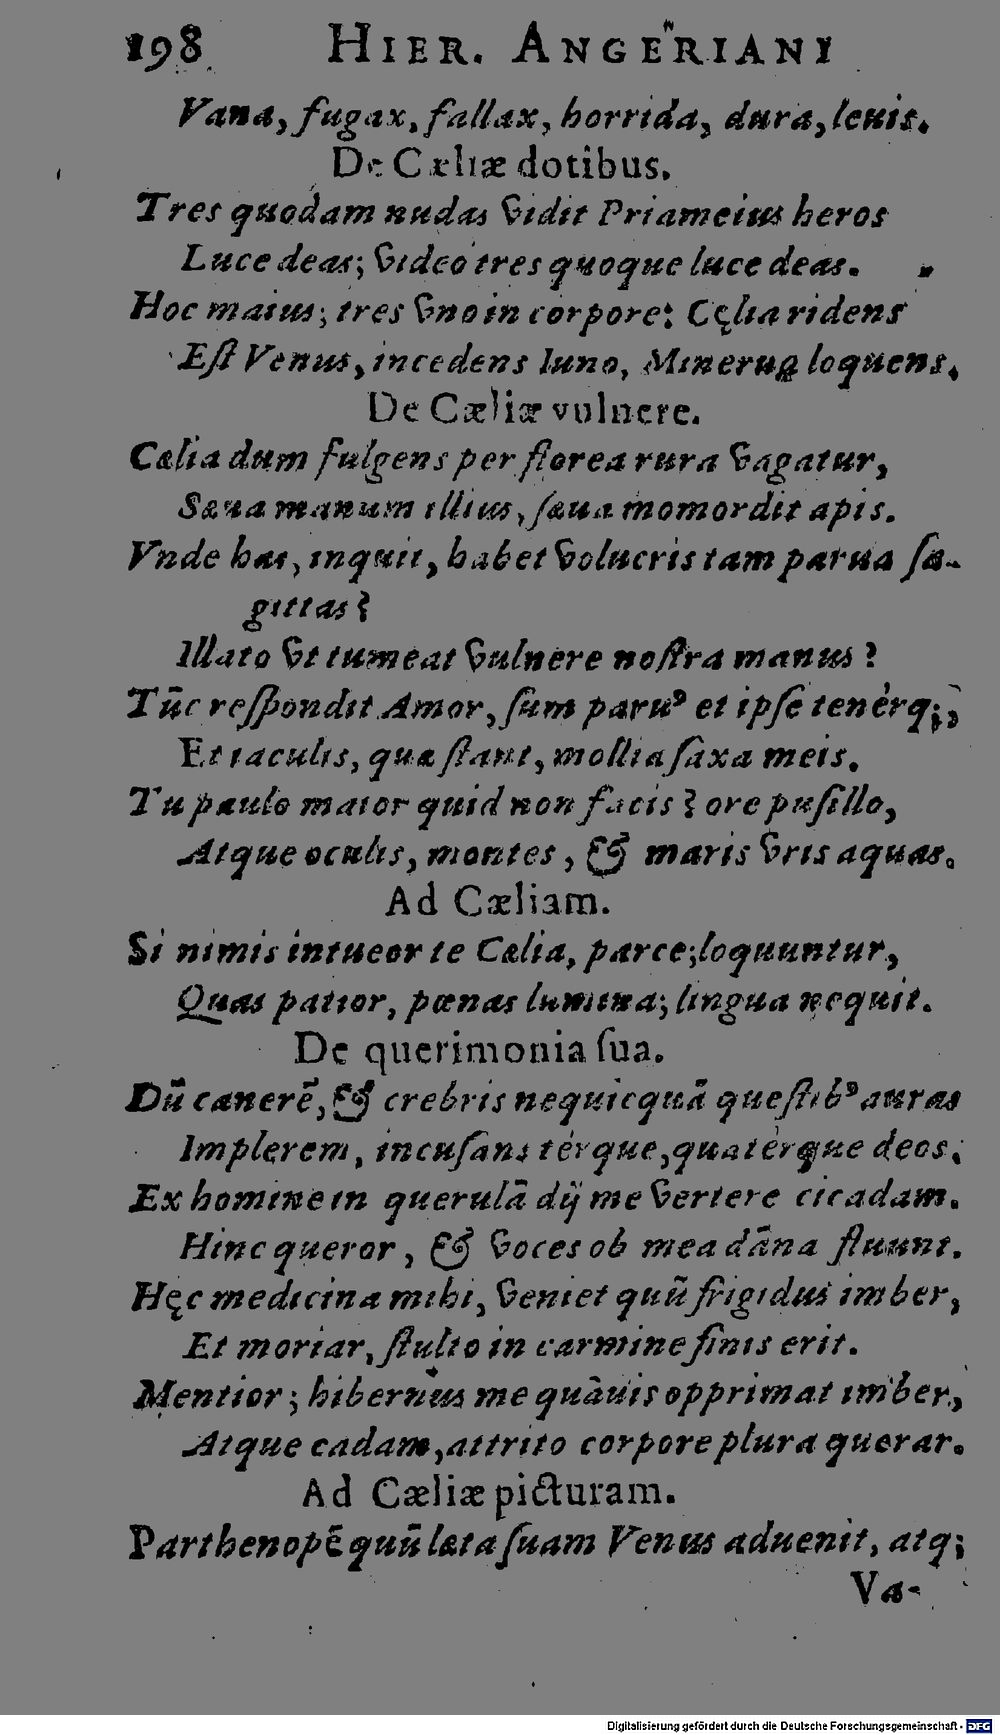 198 HIER. ANGERIANI
Vana, fugax, fallax, horrida, dura, leuis.
De Cæliæ dotibus.
Tres quodam nudas vidit Priameius heros
Luce deas; video tres quoque luce deas.
Hoc maius; tres vno in corpore: Cęlia ridens
Eſt Venus, incedens Iuno, Minerua loquens.
De Cæliæ vulnere.
Cælia dum fulgens per florea rura vagatur,
Sæua manum illius, ſæua momordit apis.
Vnde has, inquit, habet volucris tam parua ſa-
gittas?
Illato vt tumeat vulnere noſtra manus?
Tūc reſpondit Amor, ſum paruꝰ et ipſe tenérq;,
Et iaculis, quæ ſtant, mollia ſaxa meis.
Tu paulo maior quid non facis? ore puſillo,
Atque oculis, montes, & maris vris aquas.
Ad Cæliam.
Si nimis intueor te Cælia, parce; loquuntur,
Quas patior, pœnas lumina; lingua nequit.
De querimonia ſua.
Dū canerē, & crebris nequicquā queſtibꝰ auras
Implerem, incuſans térque, quatérque deos;
Ex homine in querulā dij me vertere cicadam.
Hinc queror, & voces ob mea dāna fluunt.
Hęc medicina mihi, veniet quū frigidus imber,
Et moriar, ſtulto in carmine finis erit.
Mentior; hibernus me quāuis opprimat imber,
Atque cadam, attrito corpore plura querar.
Ad Cæliæ picturam.
Parthenopē quū læta ſuam Venus aduenit, atq;
Va-
Digitalisierung gefördert durch die Deutsche Forschungsgemeinschaft - DFG